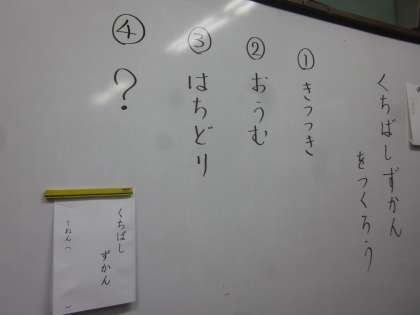 くちばしずかん
をつくろう
① きつつき
② おうむ
③ はちどり
④ ?
くちばし
ずかん